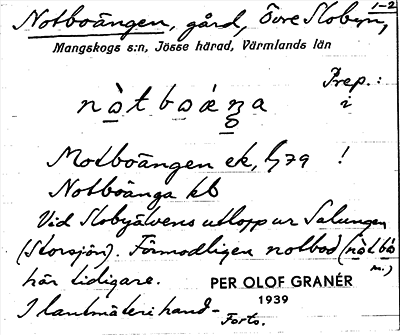 1-2
Notboängen, gård, Övre Slobyn,
Mangskogs s:n, Jösse härad, Värmlands län
Prep.:
i
Motboängen ek, lj 79 !
Notboänga kb
Vid Slobyälvens utlopp ur Salungen
(Storsjön). Förmodligen notbod
här tidigare.
PER OLOF GRANÉR
1939
I lantmäterihand-
Forts.